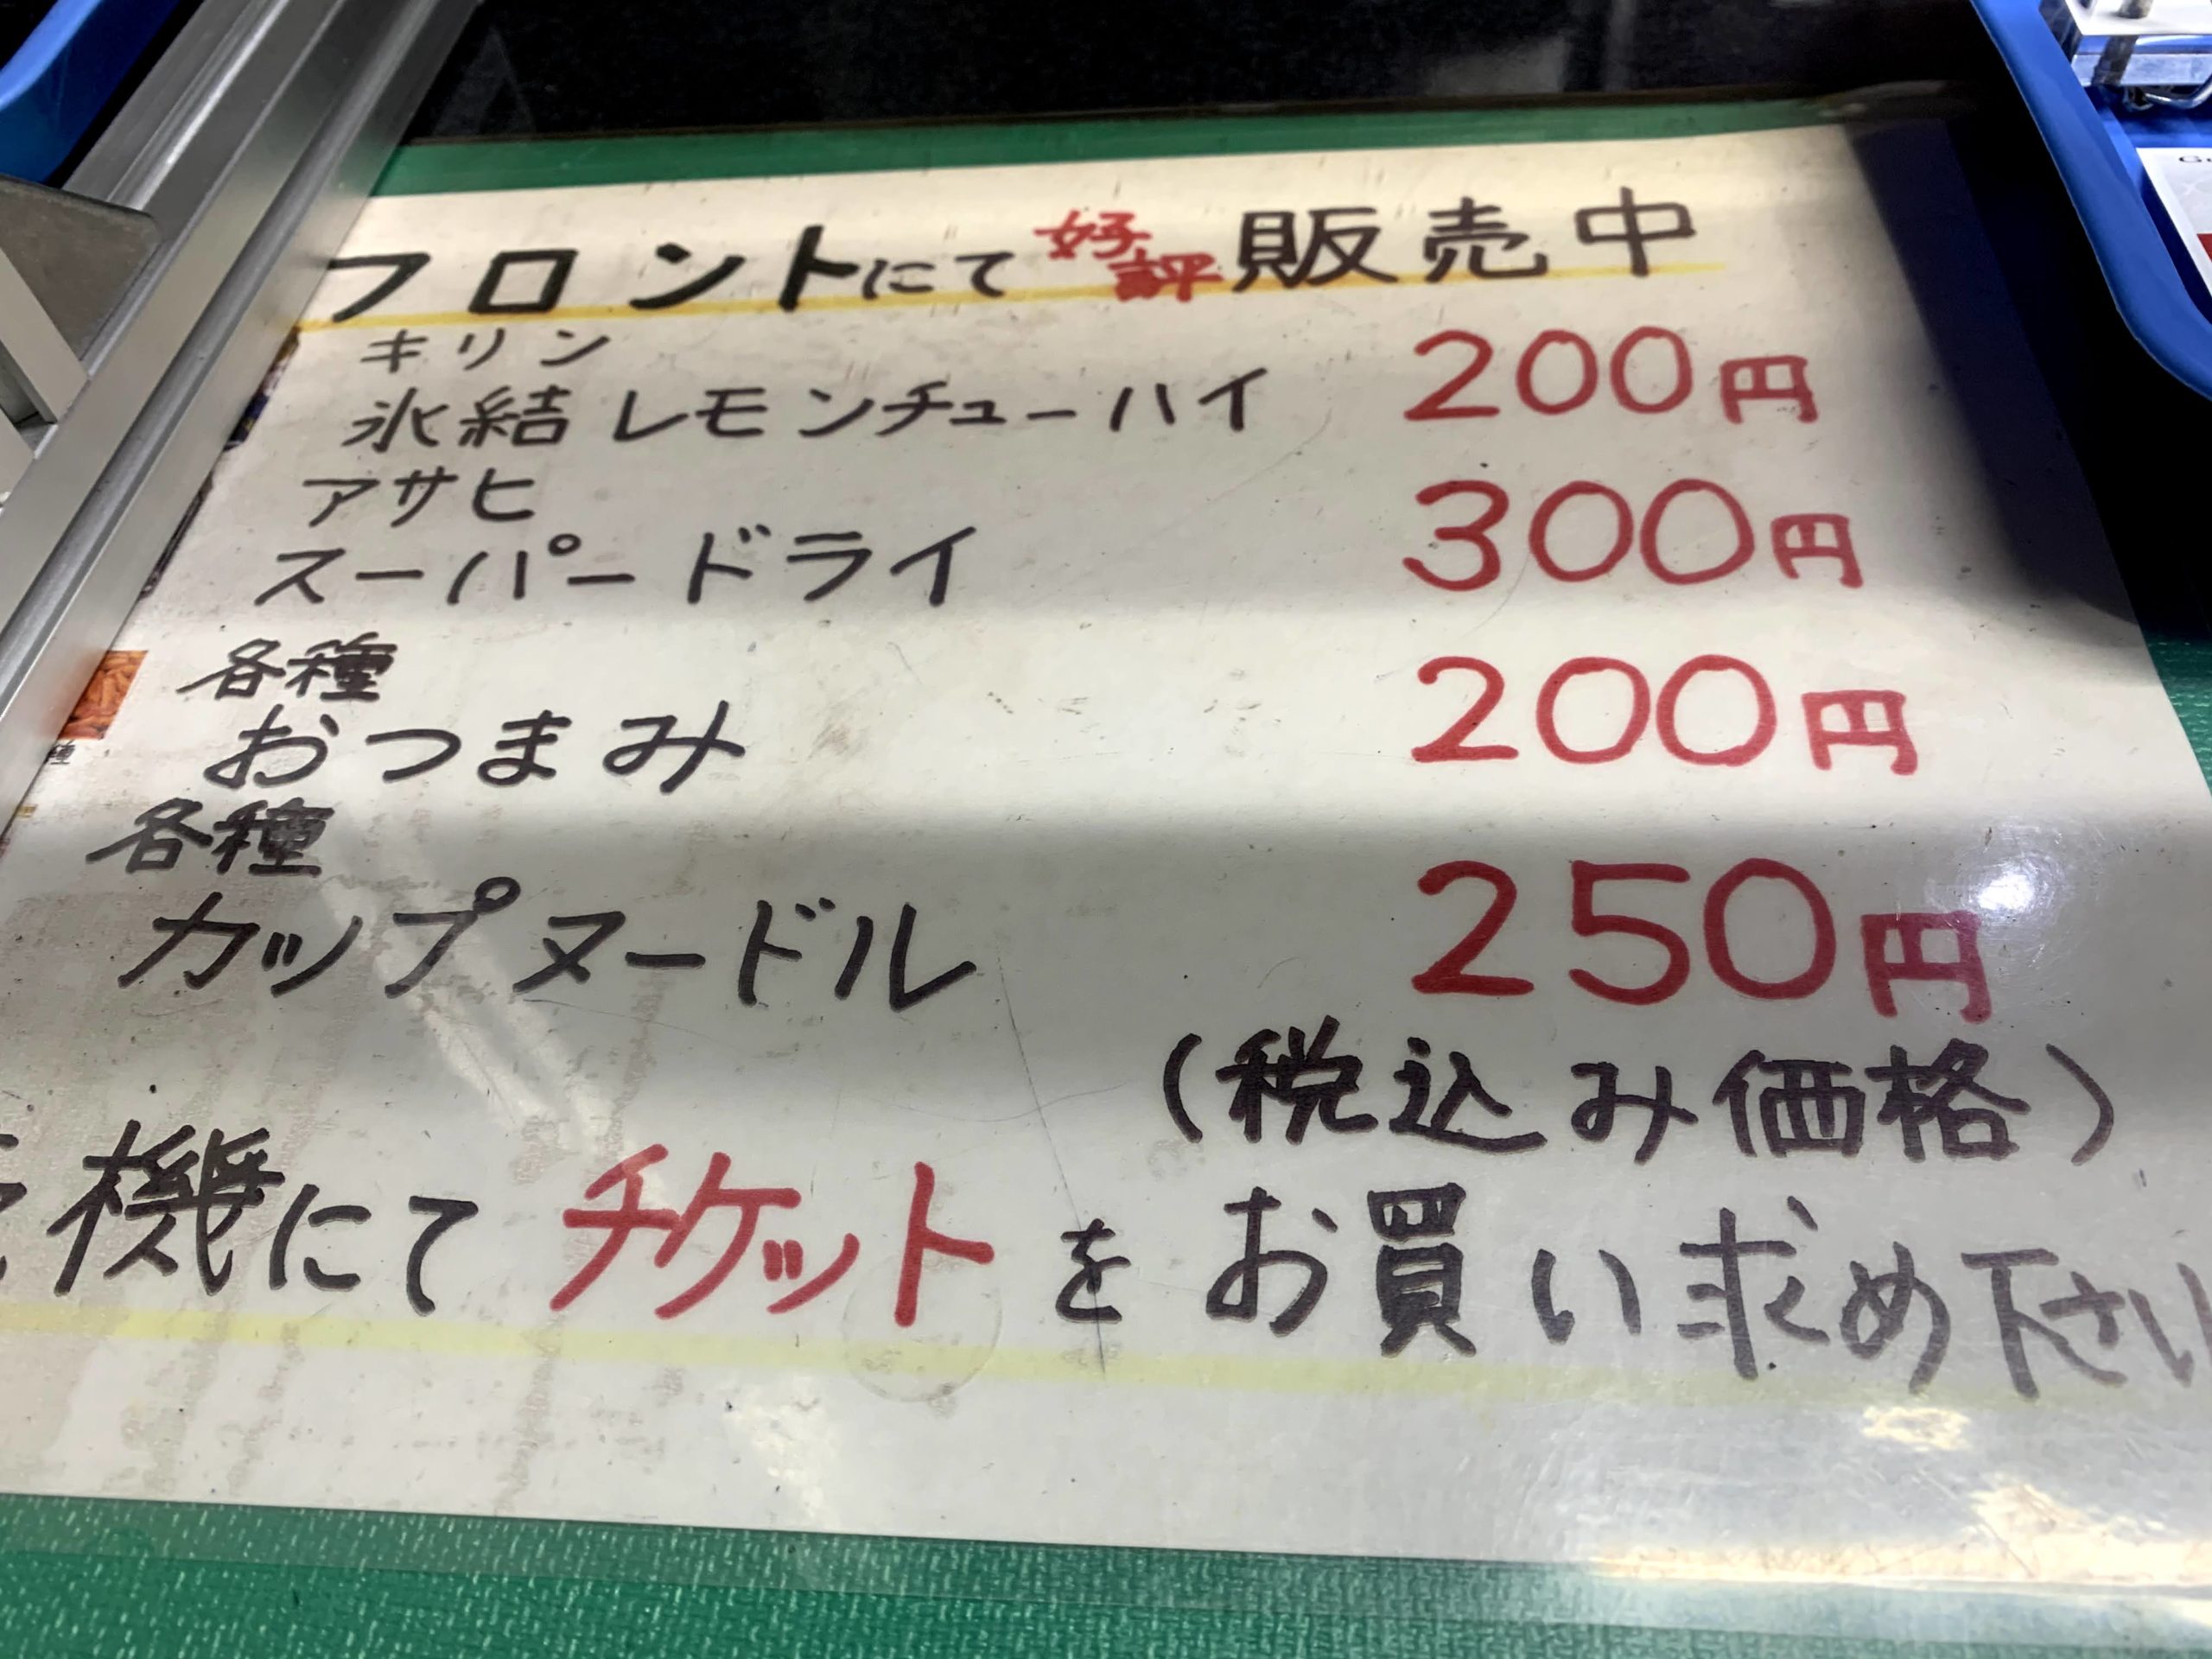 フロントにて好評販売中
キリン
氷結レモンチューハイ 200円
アサヒ
スーパードライ 300円
各種
おつまみ 200円
各種
カップヌードル 250円
(税込み価格)
機にてチケットをお買い求め下さい
種